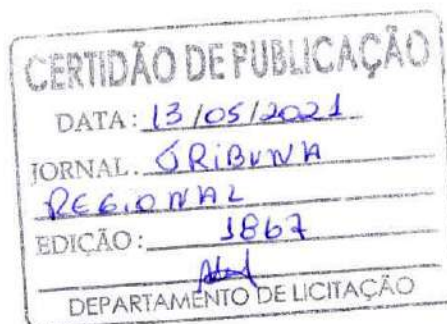 CERTIDÃO DE PUBLICAÇÃO
DATA: 13/05/2021
JORNAL. TRIBUNA
REGIONAL
EDIÇÃO: 1867
DEPARTAMENTO DE LICITAÇÃO